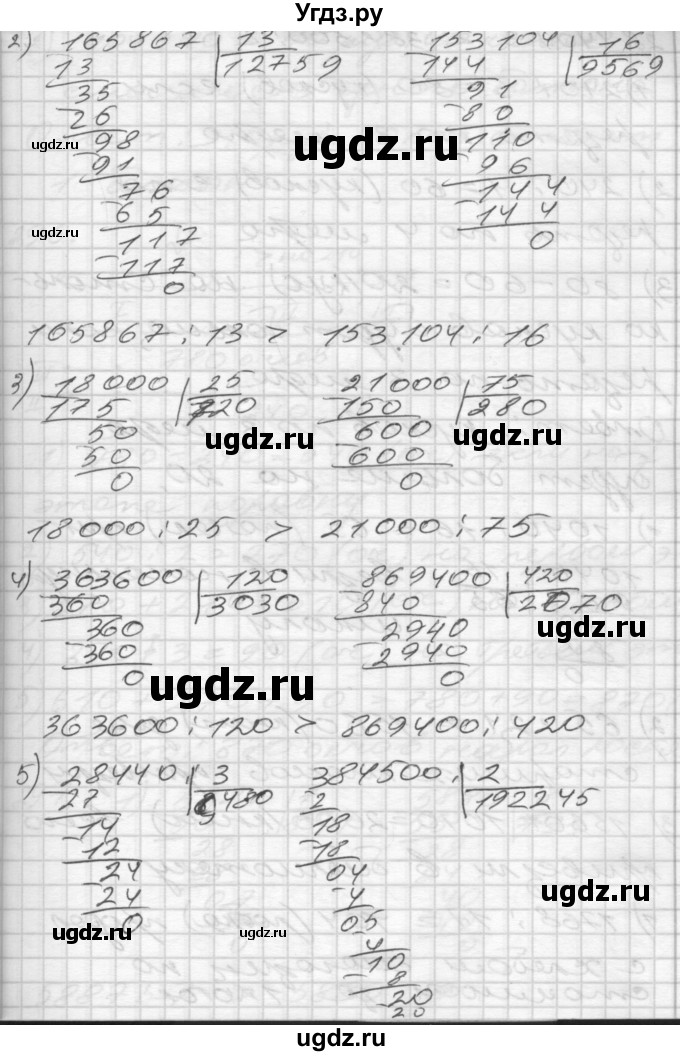 Угдз.ру
2) 165867 | 13   153104 | 16
13   12759   144   9569
35   91
26   80
98   110
91   96
76   144
65   144
117   0
117
0
165867 : 13 > 153104 : 16
3) 18000 | 25   21000 | 75
175   720   150   280
50   600
50   600
0   0
18000 : 25 > 21000 : 75
4) 363600 | 120   869400 | 420
360   3030   840   2070
360   2940
360   2940
0   0
363600 : 120 > 869400 : 420
5) 28440 : | 3   384500 : | 2
27   9480   2   192245
14   18
12   18
24   04
24   4
0   05
4
10
8
20
20
ugdz.ru
ugdz.ru
ugdz.ru
ugdz.ru
ugdz.ru
ugdz.ru
ugdz.ru
ugdz.ru
ugdz.ru
ugdz.ru
ugdz.ru
ugdz.ru